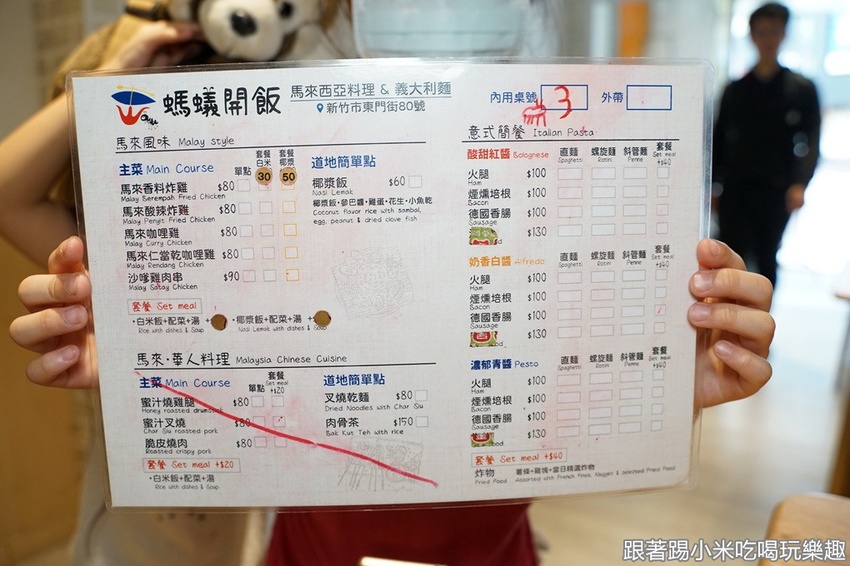 螞蟻開飯
馬來西亞料理 & 義大利麵
新竹市東門街80號
內用桌號 3 外帶
馬來風味 Malay style
主菜 Main Course
單點 套餐 白米 套餐 椰漿
30 50
馬來香料炸雞 $80
Malay Serempah Fried Chicken
馬來酸辣炸雞 $80
Malay Penjit Fried Chicken
馬來咖哩雞 $80
Malay Curry Chicken
馬來仁當乾咖哩雞 $80
Malay Rendang Chicken
沙嗲雞肉串 $90
Malay Satay Chicken
套餐 Set meal
·白米飯+配菜+湯 +
Rice with dishes & Soup
·椰漿飯+配菜+湯 +
Nasi Lemak with dishes & Soup
道地簡單點
椰漿飯 $60
Nasi Lemak
椰漿飯·參巴醬·雞蛋·花生·小魚乾
Coconut flavor rice with sambal,
egg, peanut & dried clove fish
馬來·華人料理 Malaysia Chinese Cuisine
主菜 Main Course
單點 套餐 Set meal +$20
蜜汁燒雞腿 $80
Honey roasted drumstick
蜜汁叉燒 $80
Char Siu roasted pork
脆皮燒肉 $80
Roasted crispy pork
套餐 Set meal +$20
·白米飯+配菜+湯
Rice with dishes & Soup
道地簡單點
叉燒乾麵 $80
Dried Noodles with Char Siu
肉骨茶 $150
Bak Kut Teh with rice
意式簡餐 Italian Pasta
酸甜紅醬 Bolognese
直麵 Spaghetti 螺旋麵 Rotini 斜管麵 Penne 套餐 Set meal +$40
火腿 $100
Ham
煙燻培根 $100
Bacon
德國香腸 $100
Sausage
$130
奶香白醬 Alfredo
直麵 Spaghetti 螺旋麵 Rotini 斜管麵 Penne 套餐 Set meal +$40
火腿 $100
Ham
煙燻培根 $100
Bacon
德國香腸 $100
Sausage
$130
濃郁青醬 Pesto
直麵 Spaghetti 螺旋麵 Rotini 斜管麵 Penne 套餐 Set meal +$40
火腿 $100
Ham
煙燻培根 $100
Bacon
德國香腸 $100
Sausage
$130
套餐 Set meal +$40
炸物 薯條+雞塊+當日精選炸物
Fried Food Assorted with French Fries, Nugget & selected Fried Food
跟著踢小米吃喝玩樂趣